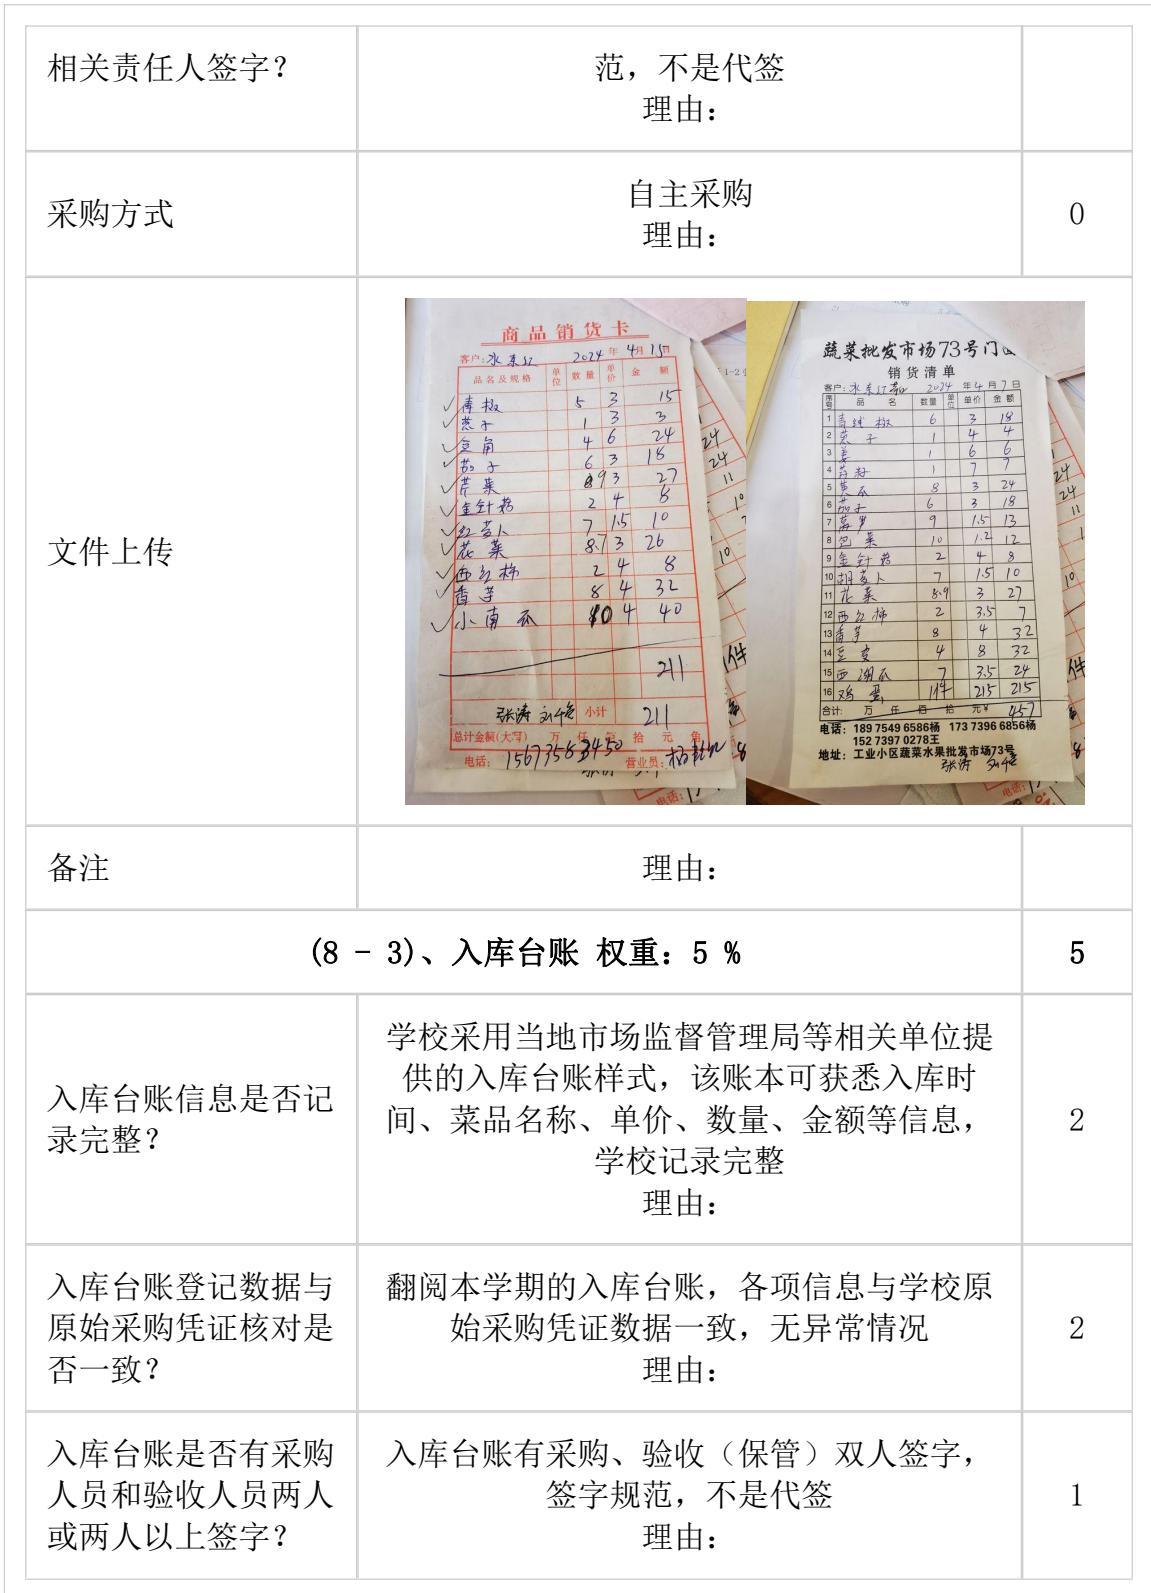 相关责任人签字？
范，不是代签
理由：
采购方式
自主采购
理由：
0
文件上传
商品销货卡
客户：水东江 2024年4月15
品名及规格 单位 数量 单价 金额
青椒 5 3 15
葱子 1 3 3
豆角 4 6 24
茄子 6 3 18
芹菜 9 3 27
金针菇 2 4 8
红萝卜 7 1.5 10
花菜 8.7 3 26
西红柿 2 4 8
香芋 8 4 32
小南瓜 10 4 40
211
张涛 小计 211
总计金额(大写) 万 仟 佰 拾 元 角
电话： 营业员：
蔬菜批发市场73号门
销货清单
客户：水东江 2024年4月7日
序号 品名 数量 单位 单价 金额
1 青线椒 6 3 18
2 葱子 1 4 4
3 姜 1 6 6
4 1 7 7
5 黄瓜 8 3 24
6 茄子 6 3 18
7 9 1.5 13
8 包菜 10 1.2 12
9 金针菇 2 4 8
10 胡萝卜 7 1.5 10
11 花菜 8.9 3 27
12 西红柿 2 3.5 7
13 香芋 8 4 32
14 豆皮 4 8 32
15 西湖瓜 7 3.5 24
16 鸡蛋 1件 215 215
合计： 万 仟 佰 拾 元¥ 457
电话：189 7549 6586杨 173 7396 6856杨
152 7397 0278王
地址：工业小区蔬菜水果批发市场73号
张涛
备注
理由：
(8 - 3)、入库台账 权重：5 %
5
入库台账信息是否记
录完整？
学校采用当地市场监督管理局等相关单位提
供的入库台账样式，该账本可获悉入库时
间、菜品名称、单价、数量、金额等信息，
学校记录完整
理由：
2
入库台账登记数据与
原始采购凭证核对是
否一致？
翻阅本学期的入库台账，各项信息与学校原
始采购凭证数据一致，无异常情况
理由：
2
入库台账是否有采购
人员和验收人员两人
或两人以上签字？
入库台账有采购、验收（保管）双人签字，
签字规范，不是代签
理由：
1